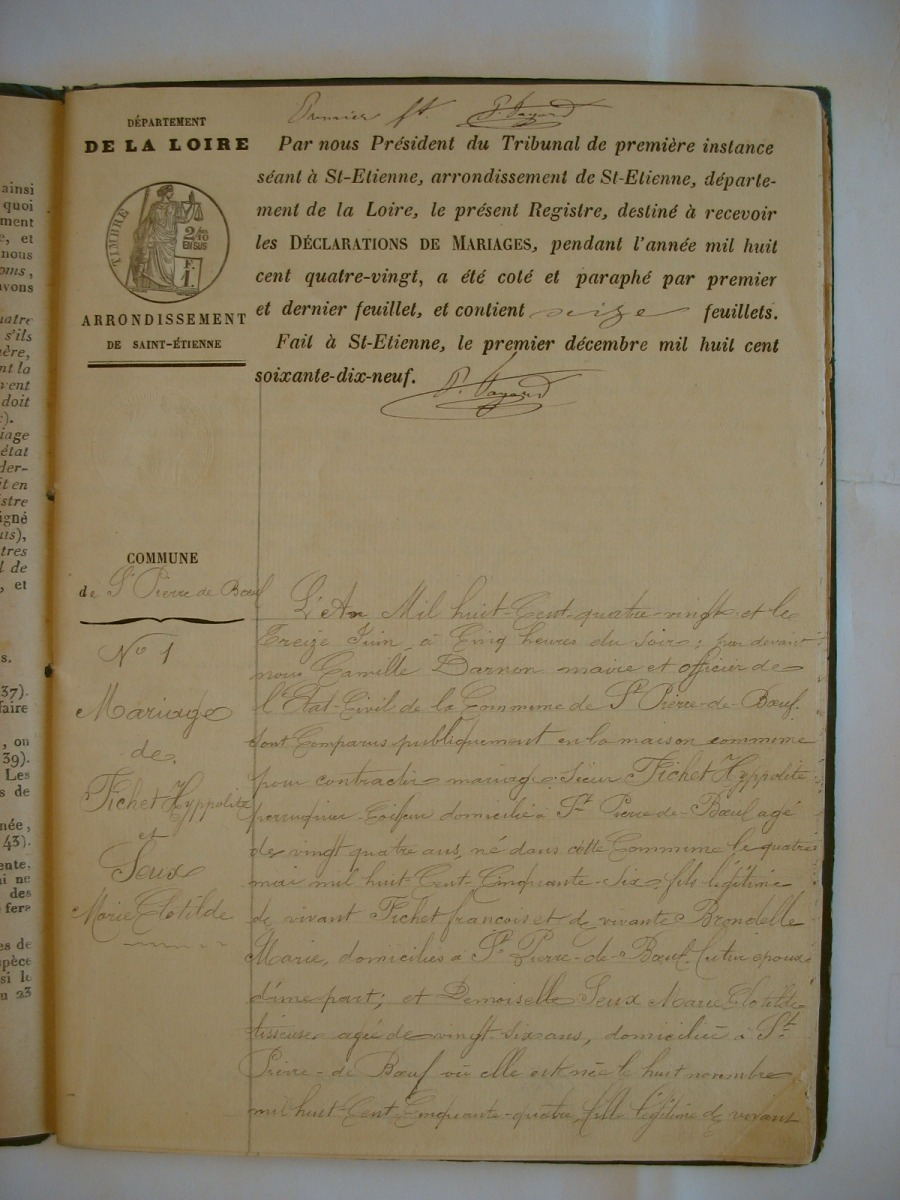 ainsi
quoi
ment
e, et
nous
oms,
avons
uatre
s'ils
ère,
nt la
vent
doit
c).
iage
état
der-
it en
istre
igné
uis),
tres
l de
, et
s.
37).
faire
, on
39).
Les
s de
née,
43).
ente,
ni ne
des
fera
es de
spèce
si le
u 23
DÉPARTEMENT
DE LA LOIRE
TIMBRE
2/10
EN SUS
F.
1.
ARRONDISSEMENT
DE SAINT-ÉTIENNE
COMMUNE
de St Pierre de Bœuf
No 1
Mariage
de
Fichet Hyppolite
et
Seux
Marie Clotilde
Premier ft.
Par nous Président du Tribunal de première instance
séant à St-Etienne, arrondissement de St-Etienne, départe-
ment de la Loire, le présent Registre, destiné à recevoir
les DÉCLARATIONS DE MARIAGES, pendant l'année mil huit
cent quatre-vingt, a été coté et paraphé par premier
et dernier feuillet, et contient seize feuillets.
Fait à St-Etienne, le premier décembre mil huit cent
soixante-dix-neuf.
L'An Mil huit Cent quatre-vingt et le
Treize Juin, à Cinq heures du soir; par devant
nous Camille Darnon maire et officier de
l'Etat-Civil de la Commune de St Pierre-de-Bœuf.
sont Comparus publiquement en la maison commune
pour contracter mariage: Sieur Fichet Hyppolite
perruquier-Coiffeur domicilié à St Pierre-de-Bœuf agé
de vingt quatre ans, né dans cette Commune le quatre
mai mil huit Cent Cinquante-six, fils légitime
de vivant Fichet francois et de vivante Brondelle
Marie, domiciliés à St Pierre-de-Bœuf. futur époux
d'une part; et Demoiselle Seux Marie Clotilde
tisseuse agée de vingt-six ans, domiciliée à St
Pierre-de Bœuf où elle est née le huit novembre
mil huit Cent Cinquante-quatre, fille légitime de vivant